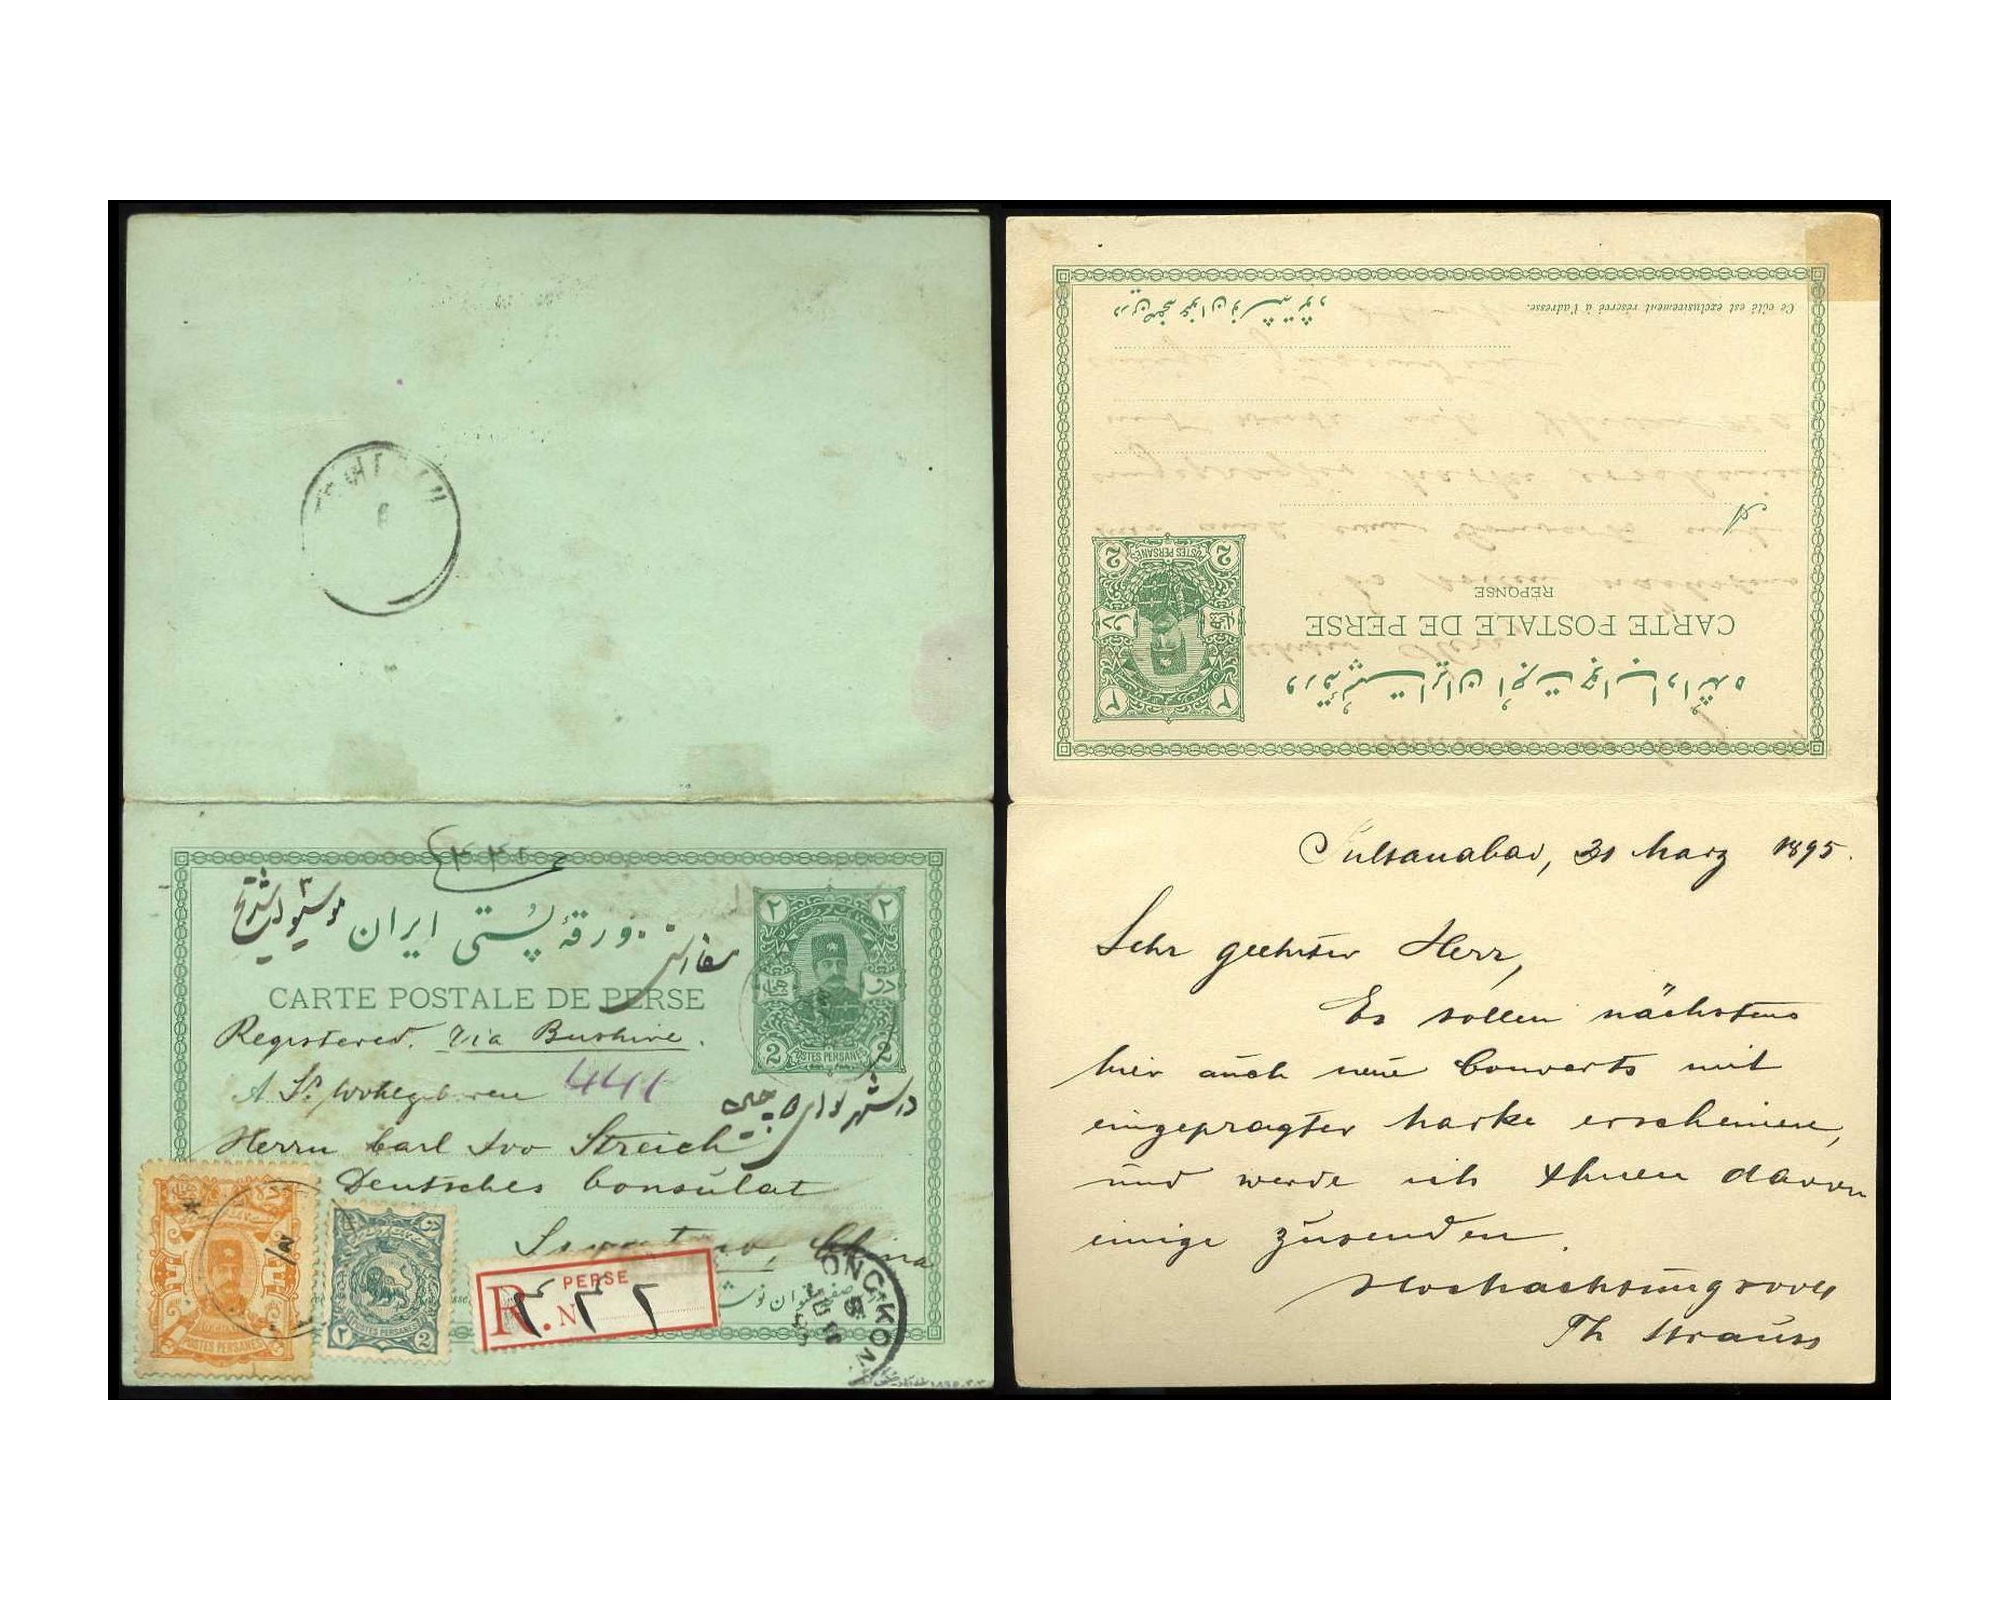 ورقهٔ پُستی ایران
سفارشی
CARTE POSTALE DE PERSE
Registered. Via Bushire.
A Sr. Wohlgeboren 441
Herrn Carl Ivo Streich
Deutsches Consulat
Swatow, China
۲ ۲
2 POSTES PERSANES 2
POSTES PERSANES
۲ POSTES PERSANES 2
PERSE
R. N
HONG KONG
Ce côté est exclusivement réservé à l'adresse.
A
2 POSTES PERSANES 2
RÉPONSE
CARTE POSTALE DE PERSE
۲ ۲
Sultanabad, 31 Marz 1895.
Sehr geehrter Herr,
Es sollen nächstens
hier auch neue Couverts mit
eingepragter Marke erscheinen,
und werde ich Ihnen davon
einige zusenden.
Hochachtungsvoll
Th Strauss